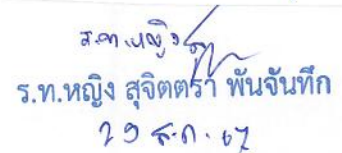 ร.ท.หญิง
ร.ท.หญิง สุจิตตรา พันจันทึก
29 ธ.ค. 67